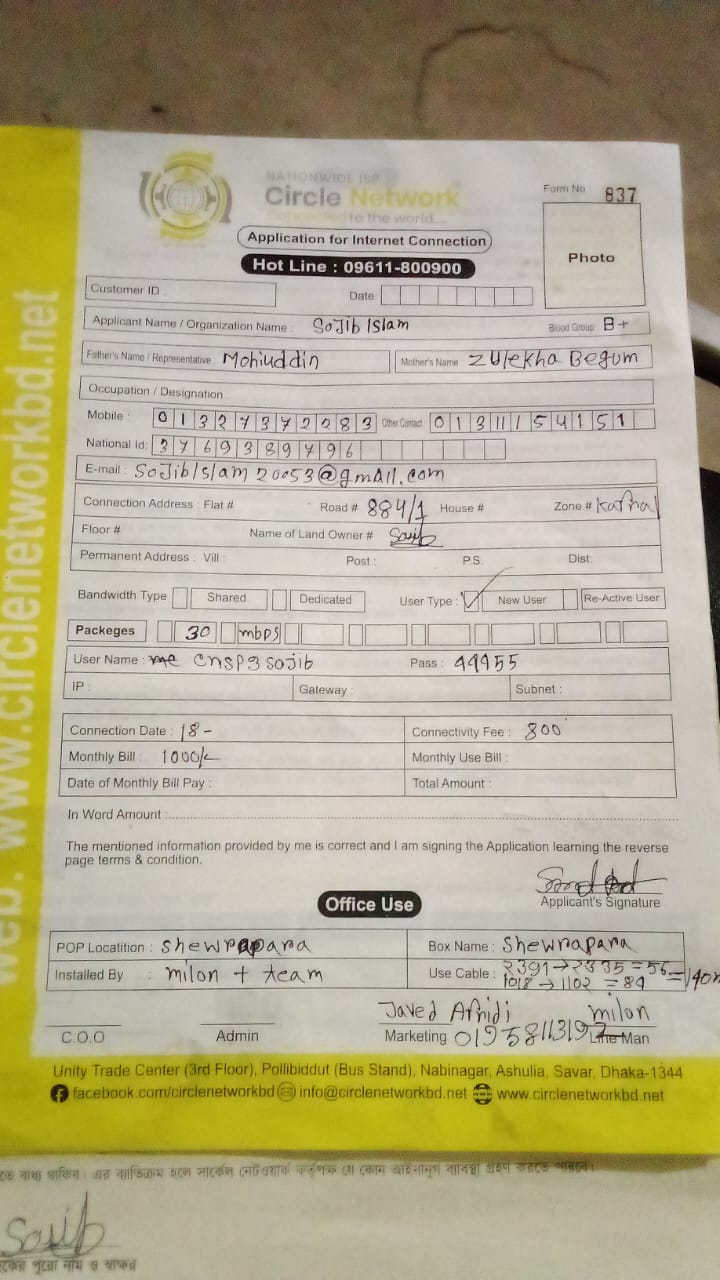 web. www.circlenetworkbd.net
NATIONWIDE ISP
Circle Network
connected to the world...
Form No 837
Photo
Application for Internet Connection
Hot Line : 09611-800900
Customer ID :
Date
Applicant Name / Organization Name : Sojib Islam Blood Group B+
Father's Name / Representative : Mohiuddin Mother's Name Zulekha Begum
Occupation / Designation
Mobile : 01327372283 Other Contact 01311154151
National Id: 3769389796
E-mail : SojibIslam20053@gmail.com
Connection Address : Flat # Road # 884/1 House # Zone # Kafrul
Floor # Name of Land Owner #
Permanent Address : Vill : Post : P.S. Dist:
Bandwidth Type Shared Dedicated User Type : ✓ New User Re-Active User
Packeges 30 mbps
User Name : me cnsp3sojib Pass : 44455
IP : Gateway : Subnet :
Connection Date : 18- Connectivity Fee : 800
Monthly Bill : 1000/- Monthly Use Bill :
Date of Monthly Bill Pay : Total Amount :
In Word Amount :
The mentioned information provided by me is correct and I am signing the Application learning the reverse
page terms & condition.
Applicant's Signature
Office Use
POP Locatition : shewrapara Box Name : shewrapara
Installed By : milon + team Use Cable : 2391→2335=56
1018→1102=84 =140m
Javed Afridi milon
C.O.O Admin Marketing 01958113192 Line Man
Unity Trade Center (3rd Floor), Pollibiddut (Bus Stand), Nabinagar, Ashulia, Savar, Dhaka-1344
facebook.com/circlenetworkbd info@circlenetworkbd.net www.circlenetworkbd.net
বাধ্য থাকিব। এর ব্যতিক্রম হলে সার্কেল নেটওয়ার্ক কর্তৃপক্ষ যে কোন আইনানুগ ব্যবস্থা গ্রহণ করতে পারবে।
পুরো নাম ও স্বাক্ষর